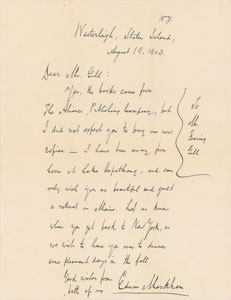 N.Y.
Westerleigh, Staten Island,
August 19, 1903.
Dear Mr. Gill:
Yes, the books come from
The Alliance Publishing Company, but
I did not expect you to buy any new
copies. — I have been away from
home at Lake Hopatcong, and can
only wish you as beautiful and quiet
a retreat in Maine. Let us know
when you get back to New York, as
we wish to have you over to dinner
some pleasant day in the fall.
Good wishes from
both of us
Edwin Markham
To
Mr.
Gill.